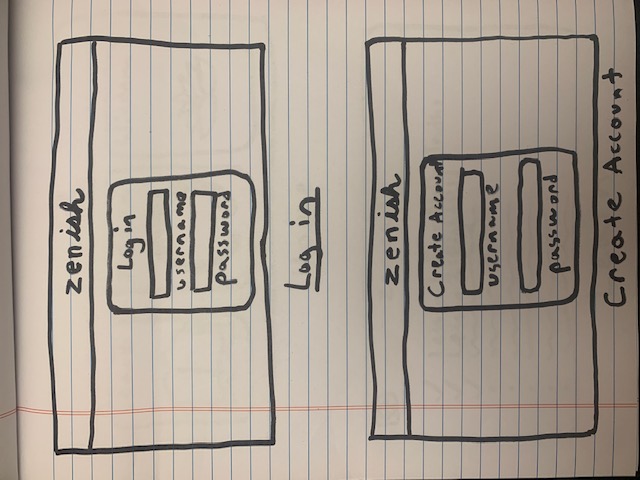 zenish
Log in
username
password
Log in
zenish
Create Account
username
password
Create Account